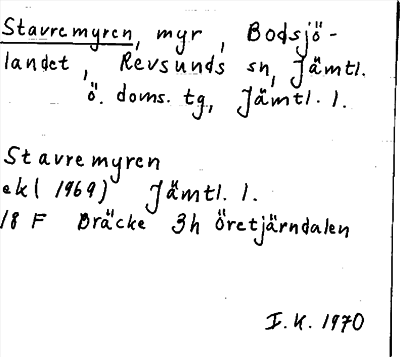 Stavremyren, myr, Bodsjö-
landet, Revsunds sn, Jämtl.
ö. doms. tg, Jämtl. l.
Stavremyren
ek (1969) Jämtl. l.
18 F Bräcke 3h Öretjärndalen
I.K. 1970